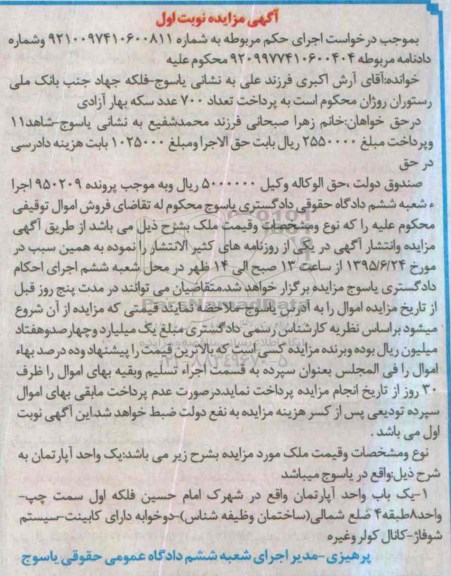 آگهی مزایده نوبت اول
بموجب درخواست اجرای حکم مربوطه به شماره ۹۲۱۰۰۹۷۴۱۰۶۰۰۸۱۱ وشماره
دادنامه مربوطه ۹۲۰۹۹۷۷۴۱۰۶۰۰۴۰۴ محکوم علیه
خوانده:آقای آرش اکبری فرزند علی به نشانی یاسوج-فلکه جهاد جنب بانک ملی
رستوران روژان محکوم است به پرداخت تعداد ۷۰۰ عدد سکه بهار آزادی
درحق خواهان:خانم زهرا صبحانی فرزند محمدشفیع به نشانی یاسوج-شاهد۱۱
وپرداخت مبلغ ۲۵۵۰۰۰۰ ریال بابت حق الاجرا ومبلغ ۱۰۲۵۰۰۰ بابت هزینه دادرسی
در حق
صندوق دولت ،حق الوکاله وکیل ۵۰۰۰۰۰۰ ریال وبه موجب پرونده ۹۵۰۲۰۹ اجرا
ء شعبه ششم دادگاه حقوقی دادگستری یاسوج محکوم له تقاضای فروش اموال توقیفی
محکوم علیه را که نوع ومشخصات وقیمت ملک بشرح ذیل می باشد از طریق آگهی
مزایده وانتشار آگهی در یکی از روزنامه های کثیر الانتشار را نموده به همین سبب در
مورخ ۱۳۹۵/۶/۲۴ از ساعت ۱۳ صبح الی ۱۴ ظهر در محل شعبه ششم اجرای احکام
دادگستری یاسوج مزایده برگزار خواهد شد.متقاضیان می توانند در مدت پنج روز قبل
از تاریخ مزایده اموال را به آدرس یاسوج ملاحضه نمایند قیمتی که مزایده از آن شروع
میشود براساس نظریه کارشناس رسمی دادگستری مبلغ یک میلیارد وچهارصدوهفتاد
میلیون ریال بوده وبرنده مزایده کسی است که بالاترین قیمت را پیشنهاد وده درصد بهاء
اموال را فی المجلس بعنوان سپرده به قسمت اجراء تسلیم وبقیه بهای اموال را ظرف
۳۰ روز از تاریخ انجام مزایده پرداخت نماید.درصورت عدم پرداخت مابقی بهای اموال
سپرده تودیعی پس از کسر هزینه مزایده به نفع دولت ضبط خواهد شد.این آگهی نوبت
اول می باشد .
نوع ومشخصات وقیمت ملک مورد مزایده بشرح زیر می باشد:یک واحد آپارتمان به
شرح ذیل:واقع در یاسوج میباشد
۱-یک باب واحد آپارتمان واقع در شهرک امام حسین فلکه اول سمت چپ-
واحد۸طبقه۴ ضلع شمالی(ساختمان وظیفه شناس)-دوخوابه دارای کابینت-سیستم
شوفاژ-کانال کولر وغیره
پرهیزی-مدیر اجرای شعبه ششم دادگاه عمومی حقوقی یاسوج